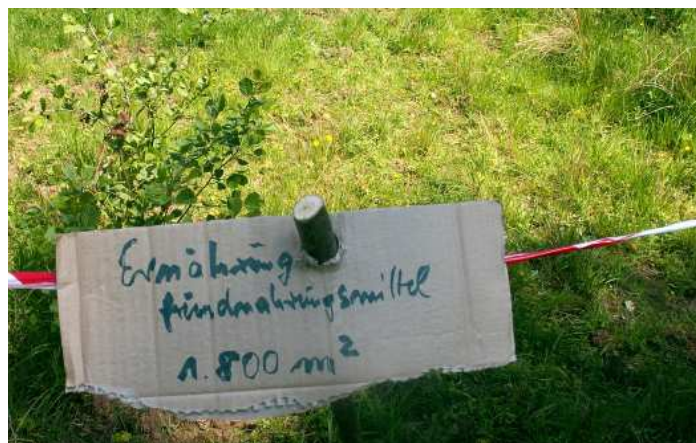 Ernährung
grundnahrungsmittel
1.800 m²